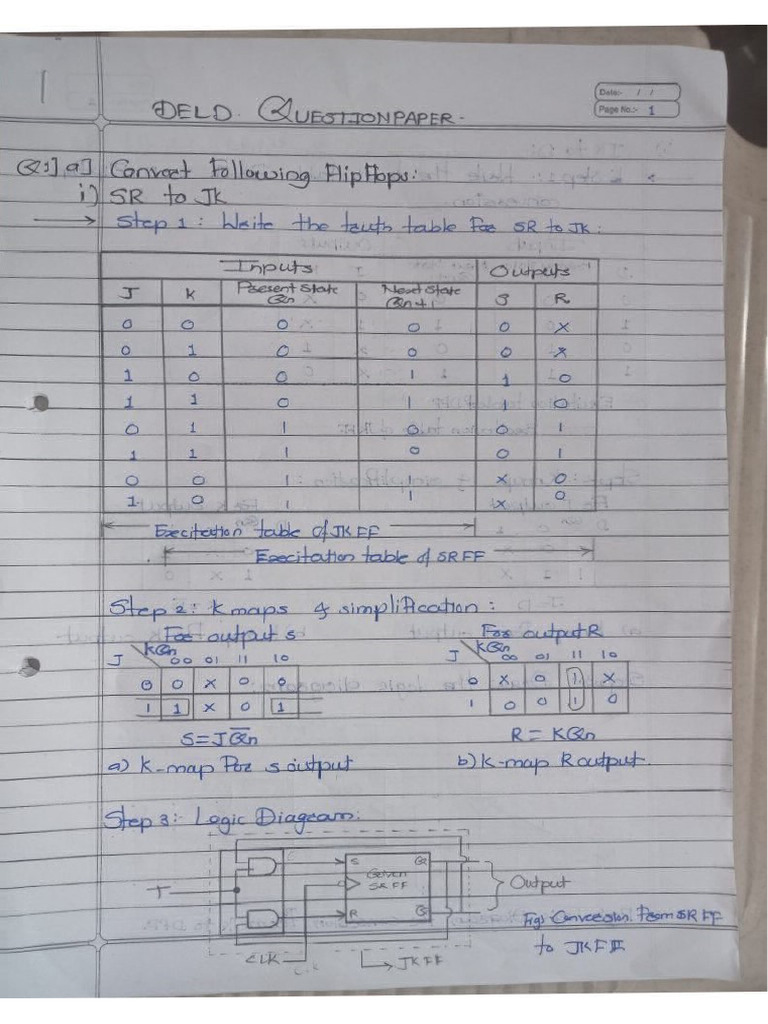 1
Date:- / /
Page No:- 1
DELD. QUESTIONPAPER.
Q.1] a] Convert Following FlipFlops:
i) SR to JK
→ Step 1: Write the truth table For SR to JK:
Inputs Outputs
J K Present State Qn Next State Qn+1 S R
0 0 0 0 0 X
0 1 0 0 0 X
1 0 0 1 1 0
1 1 0 1 1 0
0 1 1 0 0 1
1 1 1 0 0 1
0 0 1 1 X 0
1 0 1 1 X 0
Excitation table of JKFF
Excitation table of SRFF
Step 2: K maps & simplification:
For output s For output R
J KQn 00 01 11 10 J KQn 00 01 11 10
0 0 X 0 0 0 X 0 1 X
1 1 X 0 1 1 0 0 1 0
S=JQ̅n R = KQn
a) K-map For s output b) K-map R output.
Step 3:- Logic Diagram:
S Q
T Given SR FF Output
R Q̅
Fig: Conversion From SR FF
to JKFF
CLK CLK JKFF